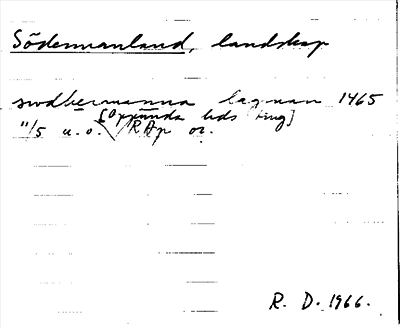 Södermanland, landskap
swdhermanna lagman 1465
[Oppunda hds ting]
11/5 u.o. RAp or.
R. D. 1966.